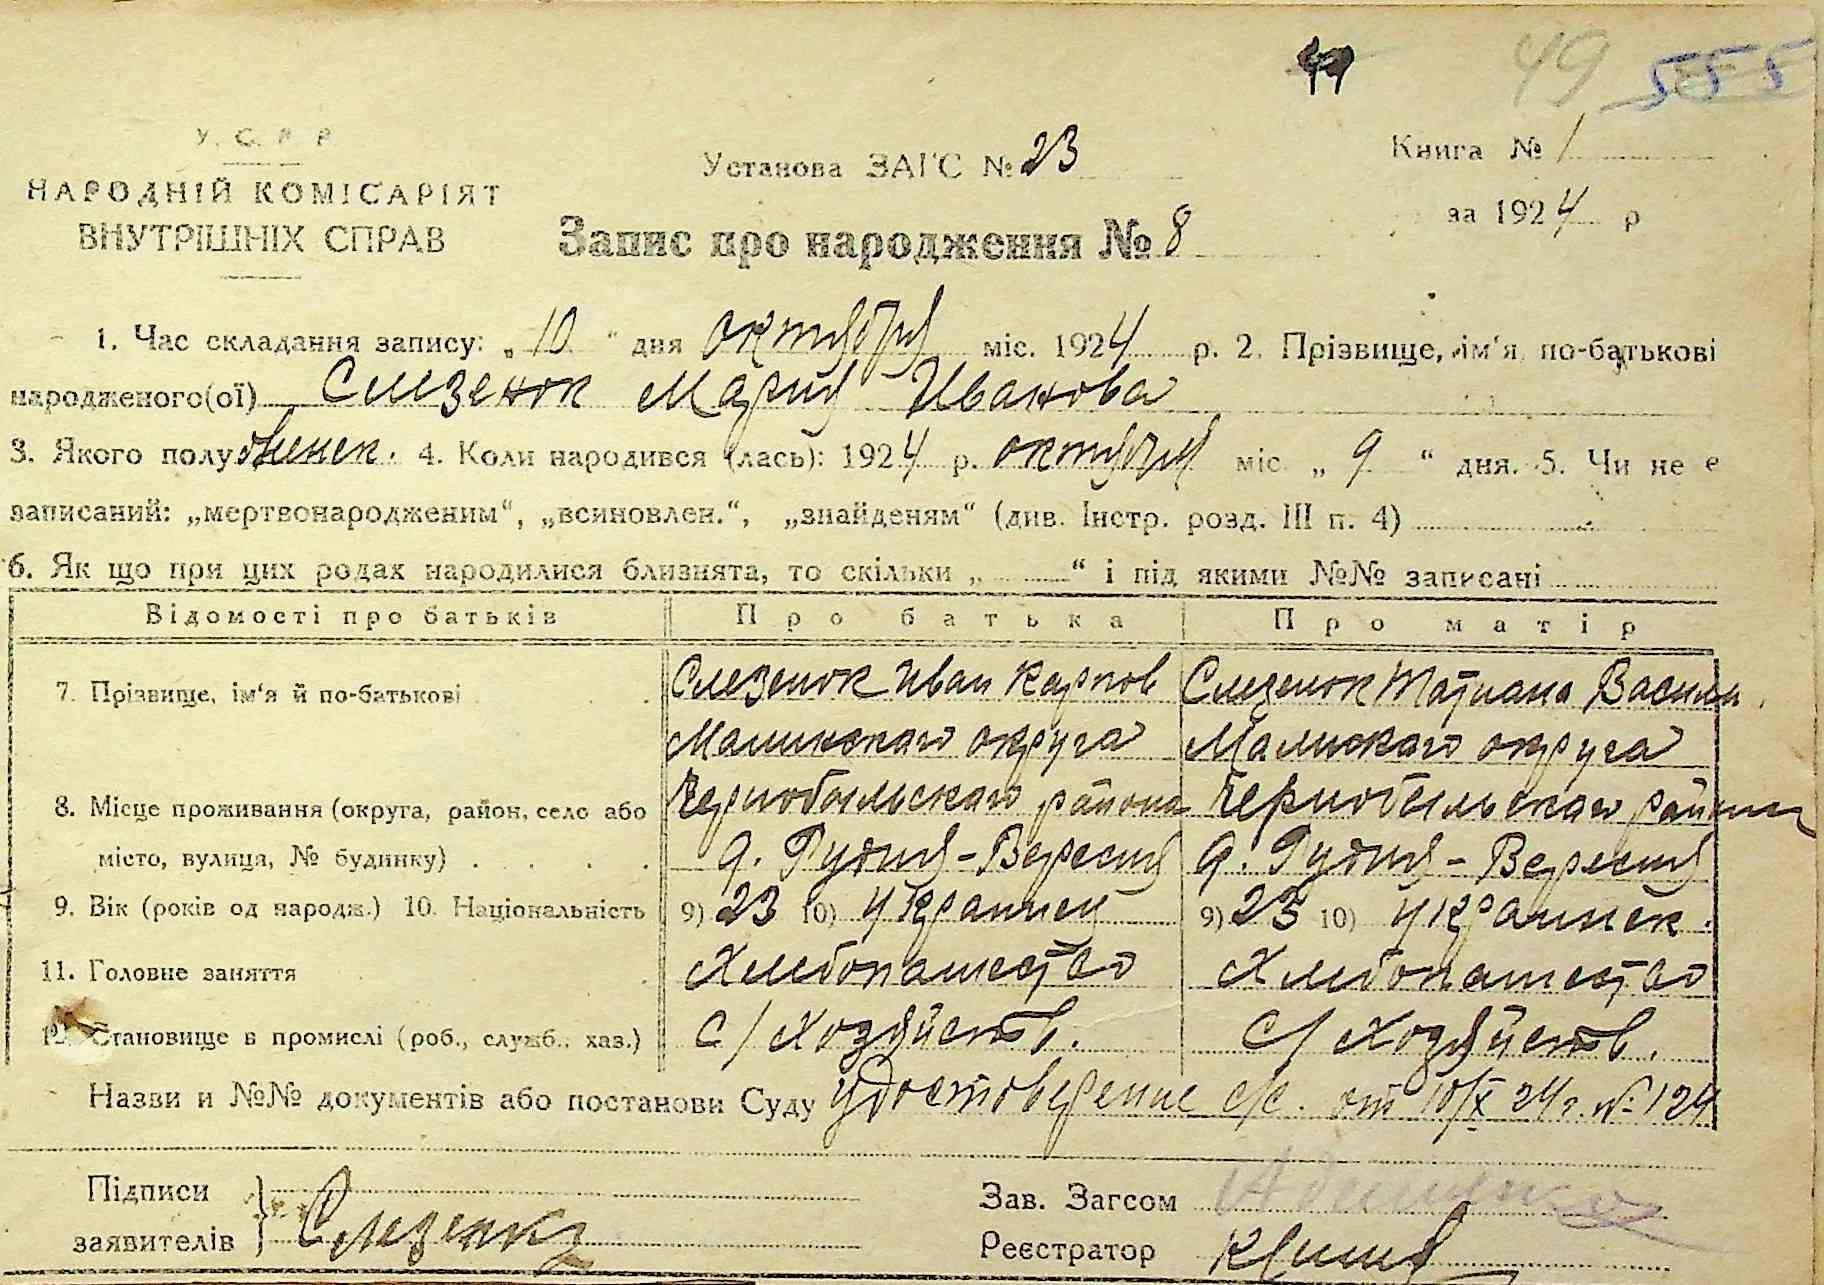 49 555
У. С. Р. Р.
НАРОДНІЙ КОМІСАРІЯТ
ВНУТРІШНІХ СПРАВ
Установа ЗАГС № 23
Книга № 1
за 1924 р
Запис про народження № 8
1. Час складання запису: „10“ дня октября міс. 1924 р. 2. Прізвище, ім‘я, по-батькові
народженого(ої) Слезенок Мария Иванова
3. Якого полу женск. 4. Коли народився (лась): 1924 р. октября міс. „9“ дня. 5. Чи не є
записаний: „мертвонародженим“, „всиновлен.“, „знайденям“ (див. Інстр. розд. III п. 4)
6. Як що при цих родах народилися близнята, то скільки „ “ і під якими №№ записані
Відомості про батьків Про батька Про матір
7. Прізвище, ім‘я й по-батькові Слезенок Иван Карпов Слезенок Татиана Васили
Малинскаго округа Малинскаго округа
8. Місце проживання (округа, район, село або Чернобыльскаго района Чернобыльскаго района
місто, вулиця, № будинку) д. Рудня-Вересня д. Рудня-Вересня
9. Вік (років од народж.) 10. Національність 9) 23 10) украинец 9) 23 10) украинск.
11. Головне заняття Хлебопашество Хлебопашество
12. Становище в промислі (роб., служб., хаз.) С/Хозяйств. С/Хозяйств.
Назви и №№ документів або постанови Суду удостоверение с/с. от 10/X 24 г. № 124
Підписи
заявителів
Зав. Загсом
Реєстратор